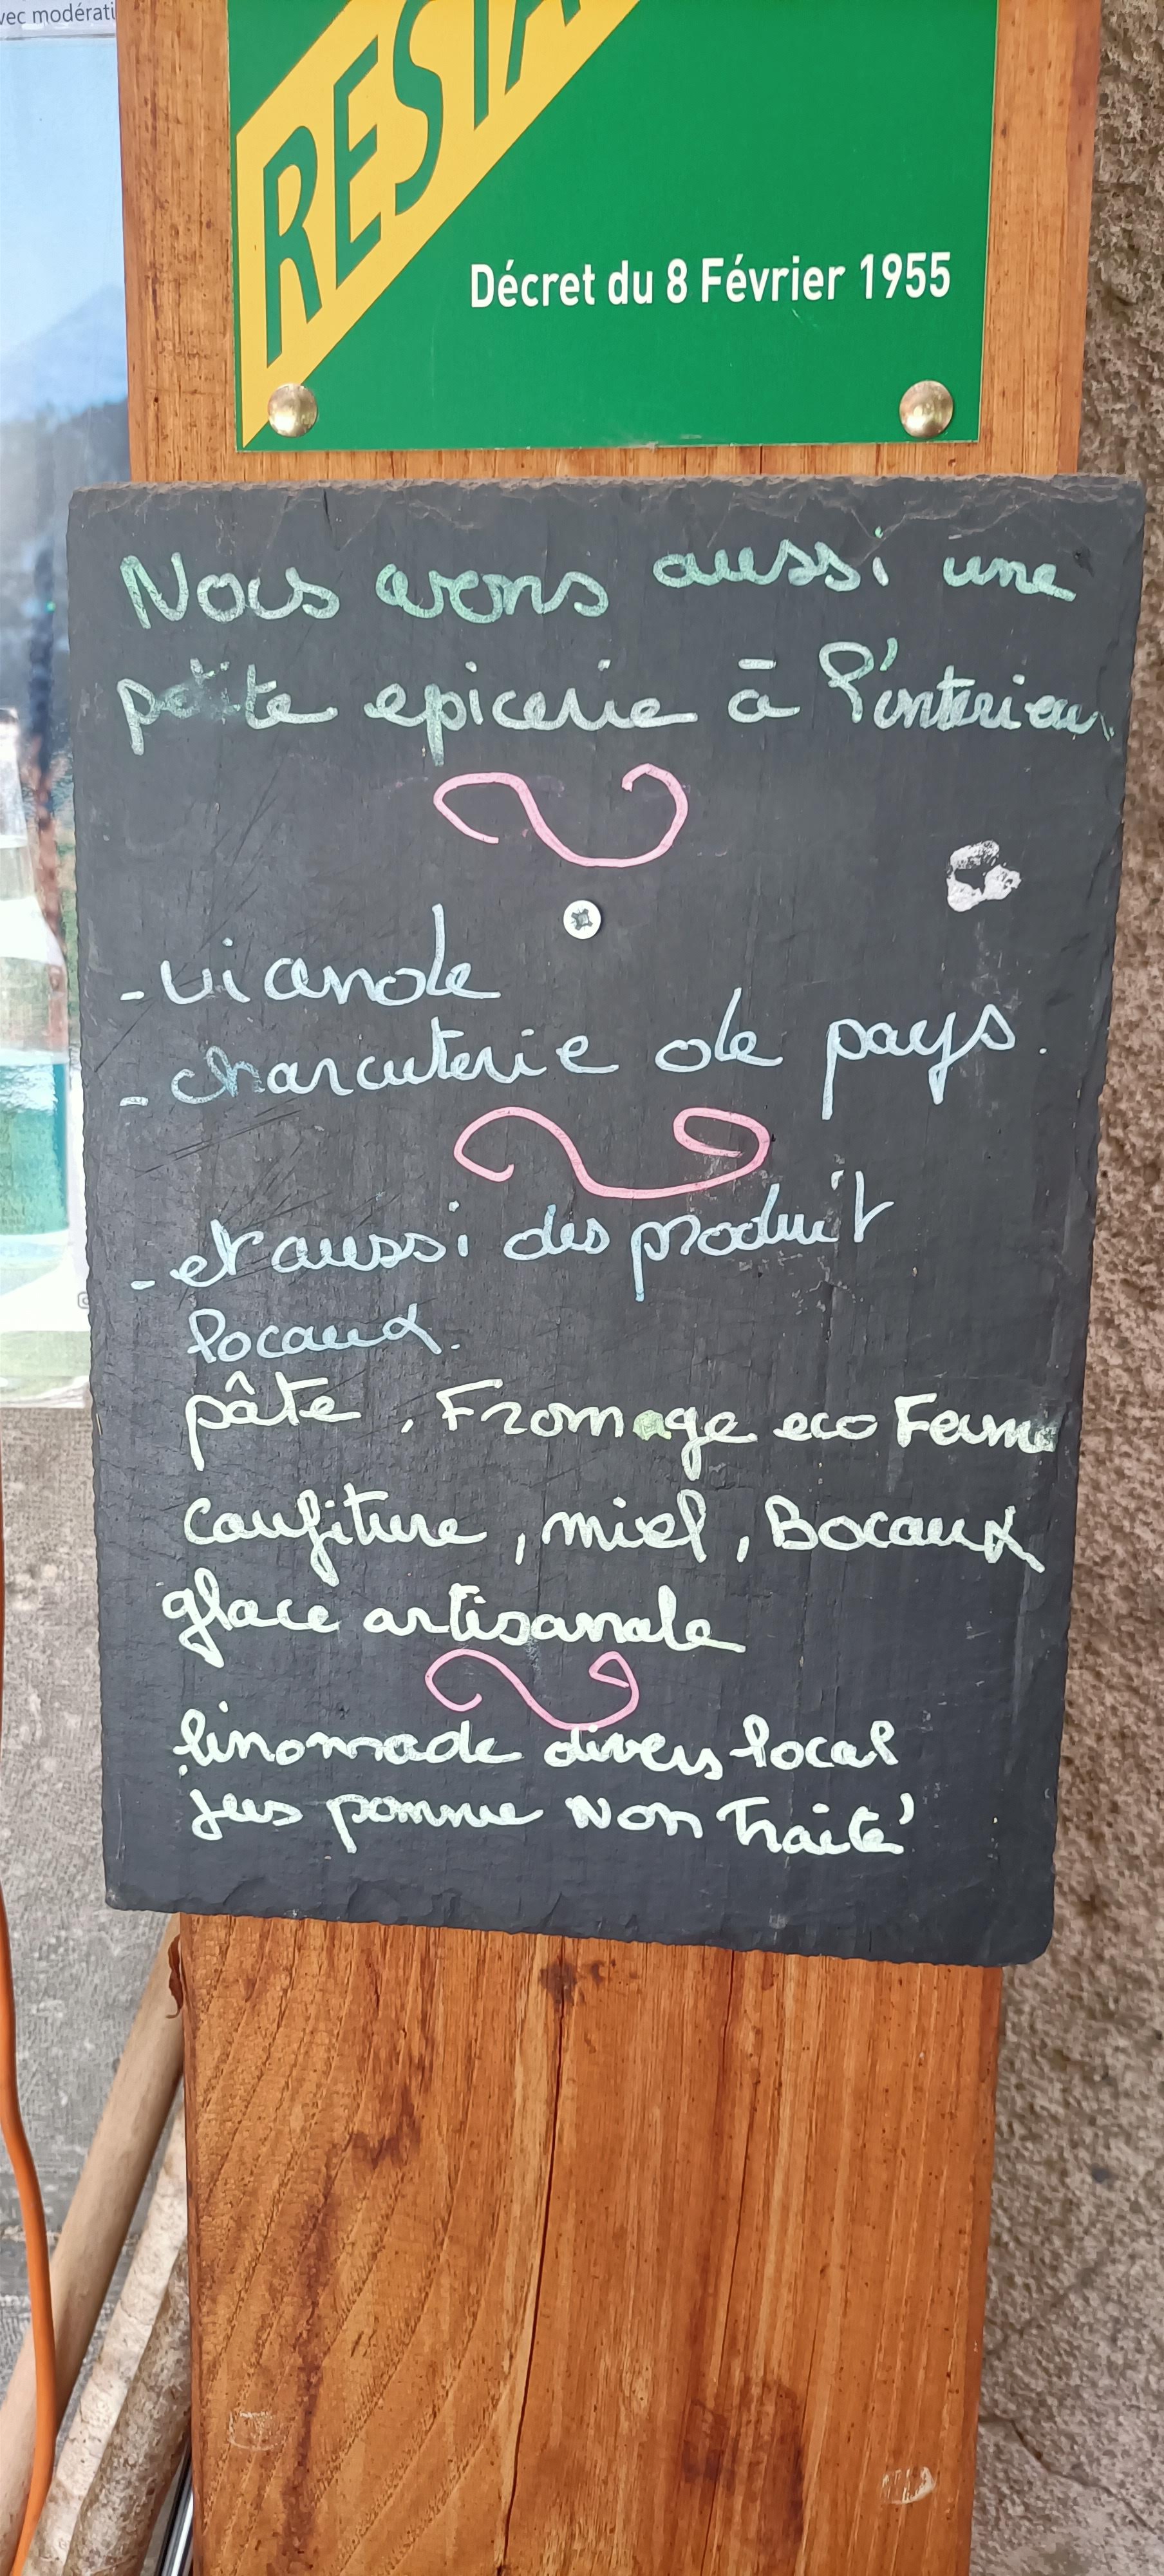 vec modérati
RESTA
Décret du 8 Février 1955
Nous avons aussi une
petite epicerie à l'interieur
- viande
- charcuterie de pays.
- et aussi des produit
locaux.
pâte, Fromage eco Ferme
Confiture, miel, Bocaux
glace artisanale
limonade divers local
jus pomme Non Traité